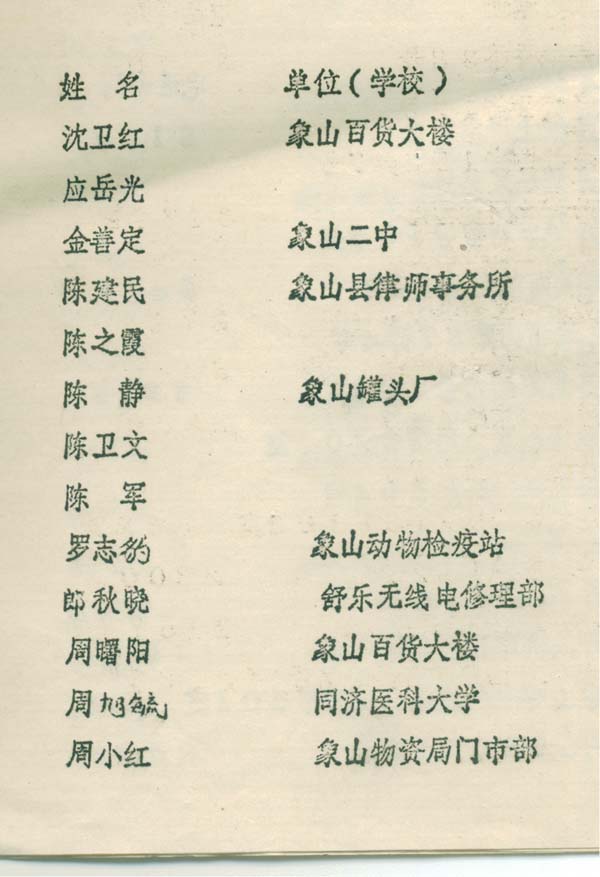 姓 名 单位（学校）
沈卫红 象山百货大楼
应岳光
金善定 象山二中
陈建民 象山县律师事务所
陈之霞
陈 静 象山罐头厂
陈卫文
陈 军
罗志豹 象山动物检疫站
郎秋晓 舒乐无线电修理部
周曙阳 象山百货大楼
周旭毓 同济医科大学
周小红 象山物资局门市部